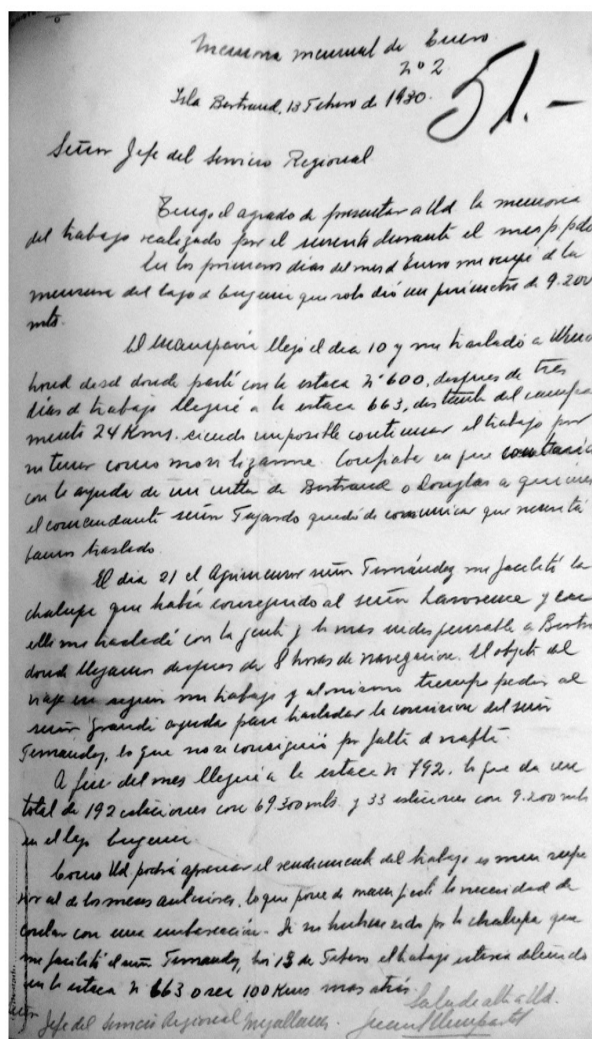 Memoria mensual de Enero
Nº 2
51.-
Isla Bertrand, 13 Febrero de 1930.
Señor Jefe del Servicio Regional
Tengo el agrado de presentar a Ud la memoria
del trabajo realizado por el suscrito durante el mes p.pdo
En los primeros dias del mes d Enero me ocupé de la
mensura del lago d Eugenia que solo dió un perimetro de 9.200
mts.
El escampavia llegó el dia 10 y me trasladó a
desde donde partí con la estaca Nº 600, despues de tres
dias d trabajo llegué a la estaca 663, distante del campa
mento 24 Kms. siendo imposible continuar el trabajo por
no tener como movilizarme. Confiaba en que contaria
con la ayuda de un cutter de Bertrand o Douglas a quienes
el comandante señor Fajardo quedó de comunicar que necesitá
bamos traslado.
El dia 21 el Agrimensor señor Fernández me facilitó la
chalupa que había conseguido al señor Lawrence y con
ella me trasladé con la gente y lo mas indispensable a Bertra
donde llegamos despues de 8 horas de navegación. El objeto del
viaje era seguir mi trabajo y al mismo tiempo pedir al
señor Grandi ayuda para trasladar la comision del señor
Fernandez, lo que no se consiguió por falta d nafta.
A fin del mes llegué a la estaca N 792, lo que da un
total de 192 estaciones con 69.300 mts. y 33 estaciones con 9.200 mts
en el lago Eugenia.
Como Ud podrá apreciar el rendimiento del trabajo es muy supe
rior al de los meses anteriores, lo que pone de manifiesto la necesidad de
contar con una embarcación. Si no hubiese sido por la chalupa que
me facilitó el señor Fernandez, hoi 13 de Febrero el trabajo estaria detenido
en la estaca N 663 o sea 100 Kms mas atrás.
Saluda atte a Ud.
Jefe del Servicio Regional Magallanes.